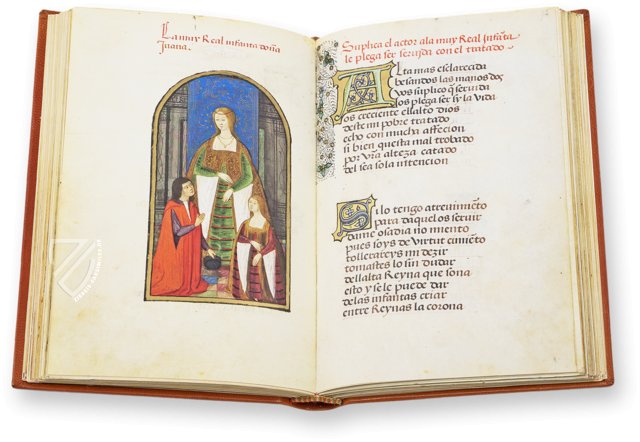 La muy Real infanta doña
Juana.
Suplica el actor ala muy Real Infāta
le plega ser seruida con el tratado
Alta mas esclarecida
besandos las manos dos
vos suplico q̄ seruida
os plega ser sy la vida
os creciente el alto dios
deste mi pobre tratado
echo con mucha affecion
si bien questa mal trobado
por vr̄a alteza catado
del sea sola intencion
Si lo tengo atreuimiēto
para daquelos seruir
dame osadia no miento
pues soys de virtut cimiēto
tollerareys mi dezir
tomastes lo sin dudar
dellalta Reyna que sona
esto y se le puede dar
delas infantas criar
entre Reynas la corona